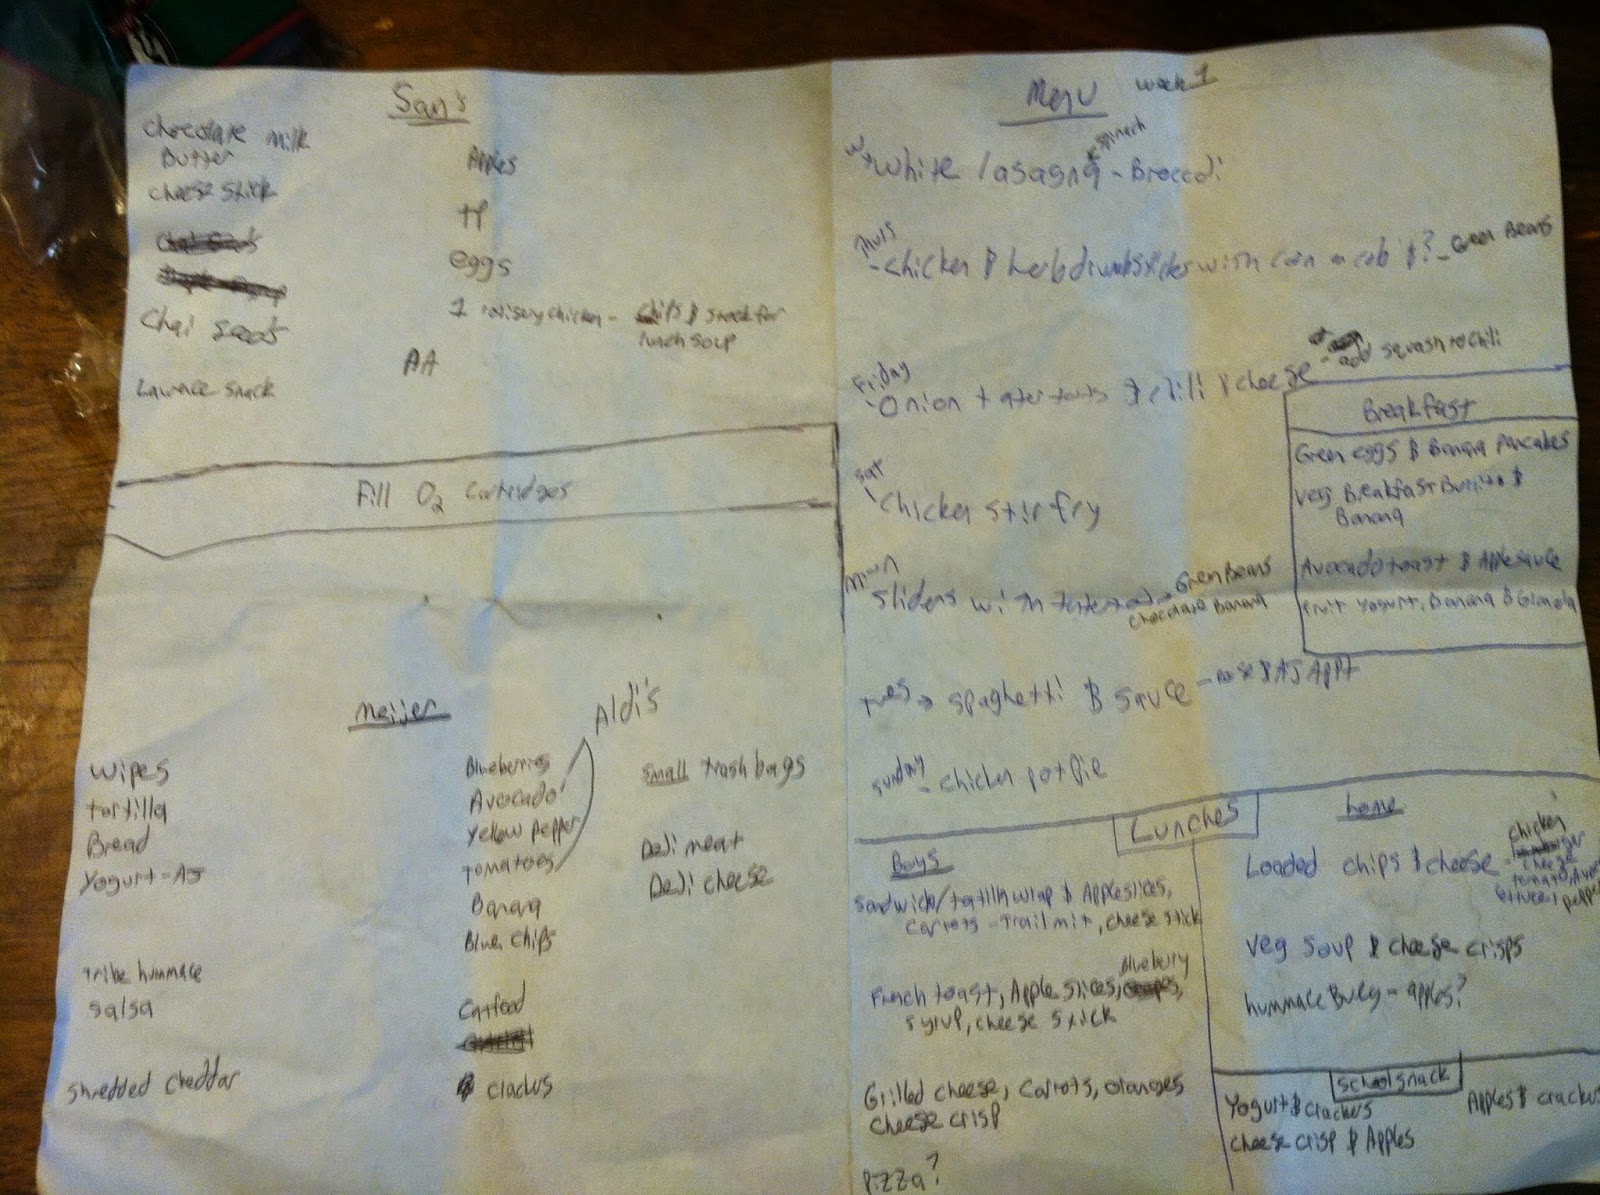 Sam's
chocolate milk
Butter
cheese stick
Chai seeds
Lawrnce snack
Apples
TP
eggs
1 rotisery chicken - chips & stock for
lunch soup
AA
Fill O2 Cartridges
Meijer
wipes
tortilla
Bread
Yogurt - AJ
Tribe hummace
salsa
Shredded Cheddar
Blueberries
Avocado
Yellow pepper
Tomatoes
Banana
Blue chips
Catfood
crackrs
Aldi's
small trash bags
Deli meat
Deli cheese
Menu week 1
W- White lasagna - Broccoli
+ spinach
Thurs
- chicken & herb drumbsticks with corn on cob &? - Green Beans
Friday
- Onion tater tots & chili & cheese - add squash to chili
Sat
- Chicken stir fry
Mon
- Sliders with tater tots - Green Beans
chocolate Banana
Tues -> spaghetti & sauce - & AJ APPT
Sunday - chicken pot pie
Breakfast
Green eggs & Banana pancakes
Veg Breakfast Burrito &
Banana
Avocado toast & Applesauce
Fruit Yogurt, Banana & Granola
Lunches
Boys
Sandwich/tortilla wrap & Apple slices,
carrots - trail mit, cheese stick
French toast, Apple slices, Bluebury
syrup, cheese stick
Grilled cheese, carrots, oranges
cheese crisp
Pizza?
home
Loaded chips & cheese - chicken
cheese
tomato,
lettuce,
Veg soup & cheese crisps
hummace Burg - apples?
School snack
Yogurt & crackers
cheese crisp & Apples
Apples & crackers